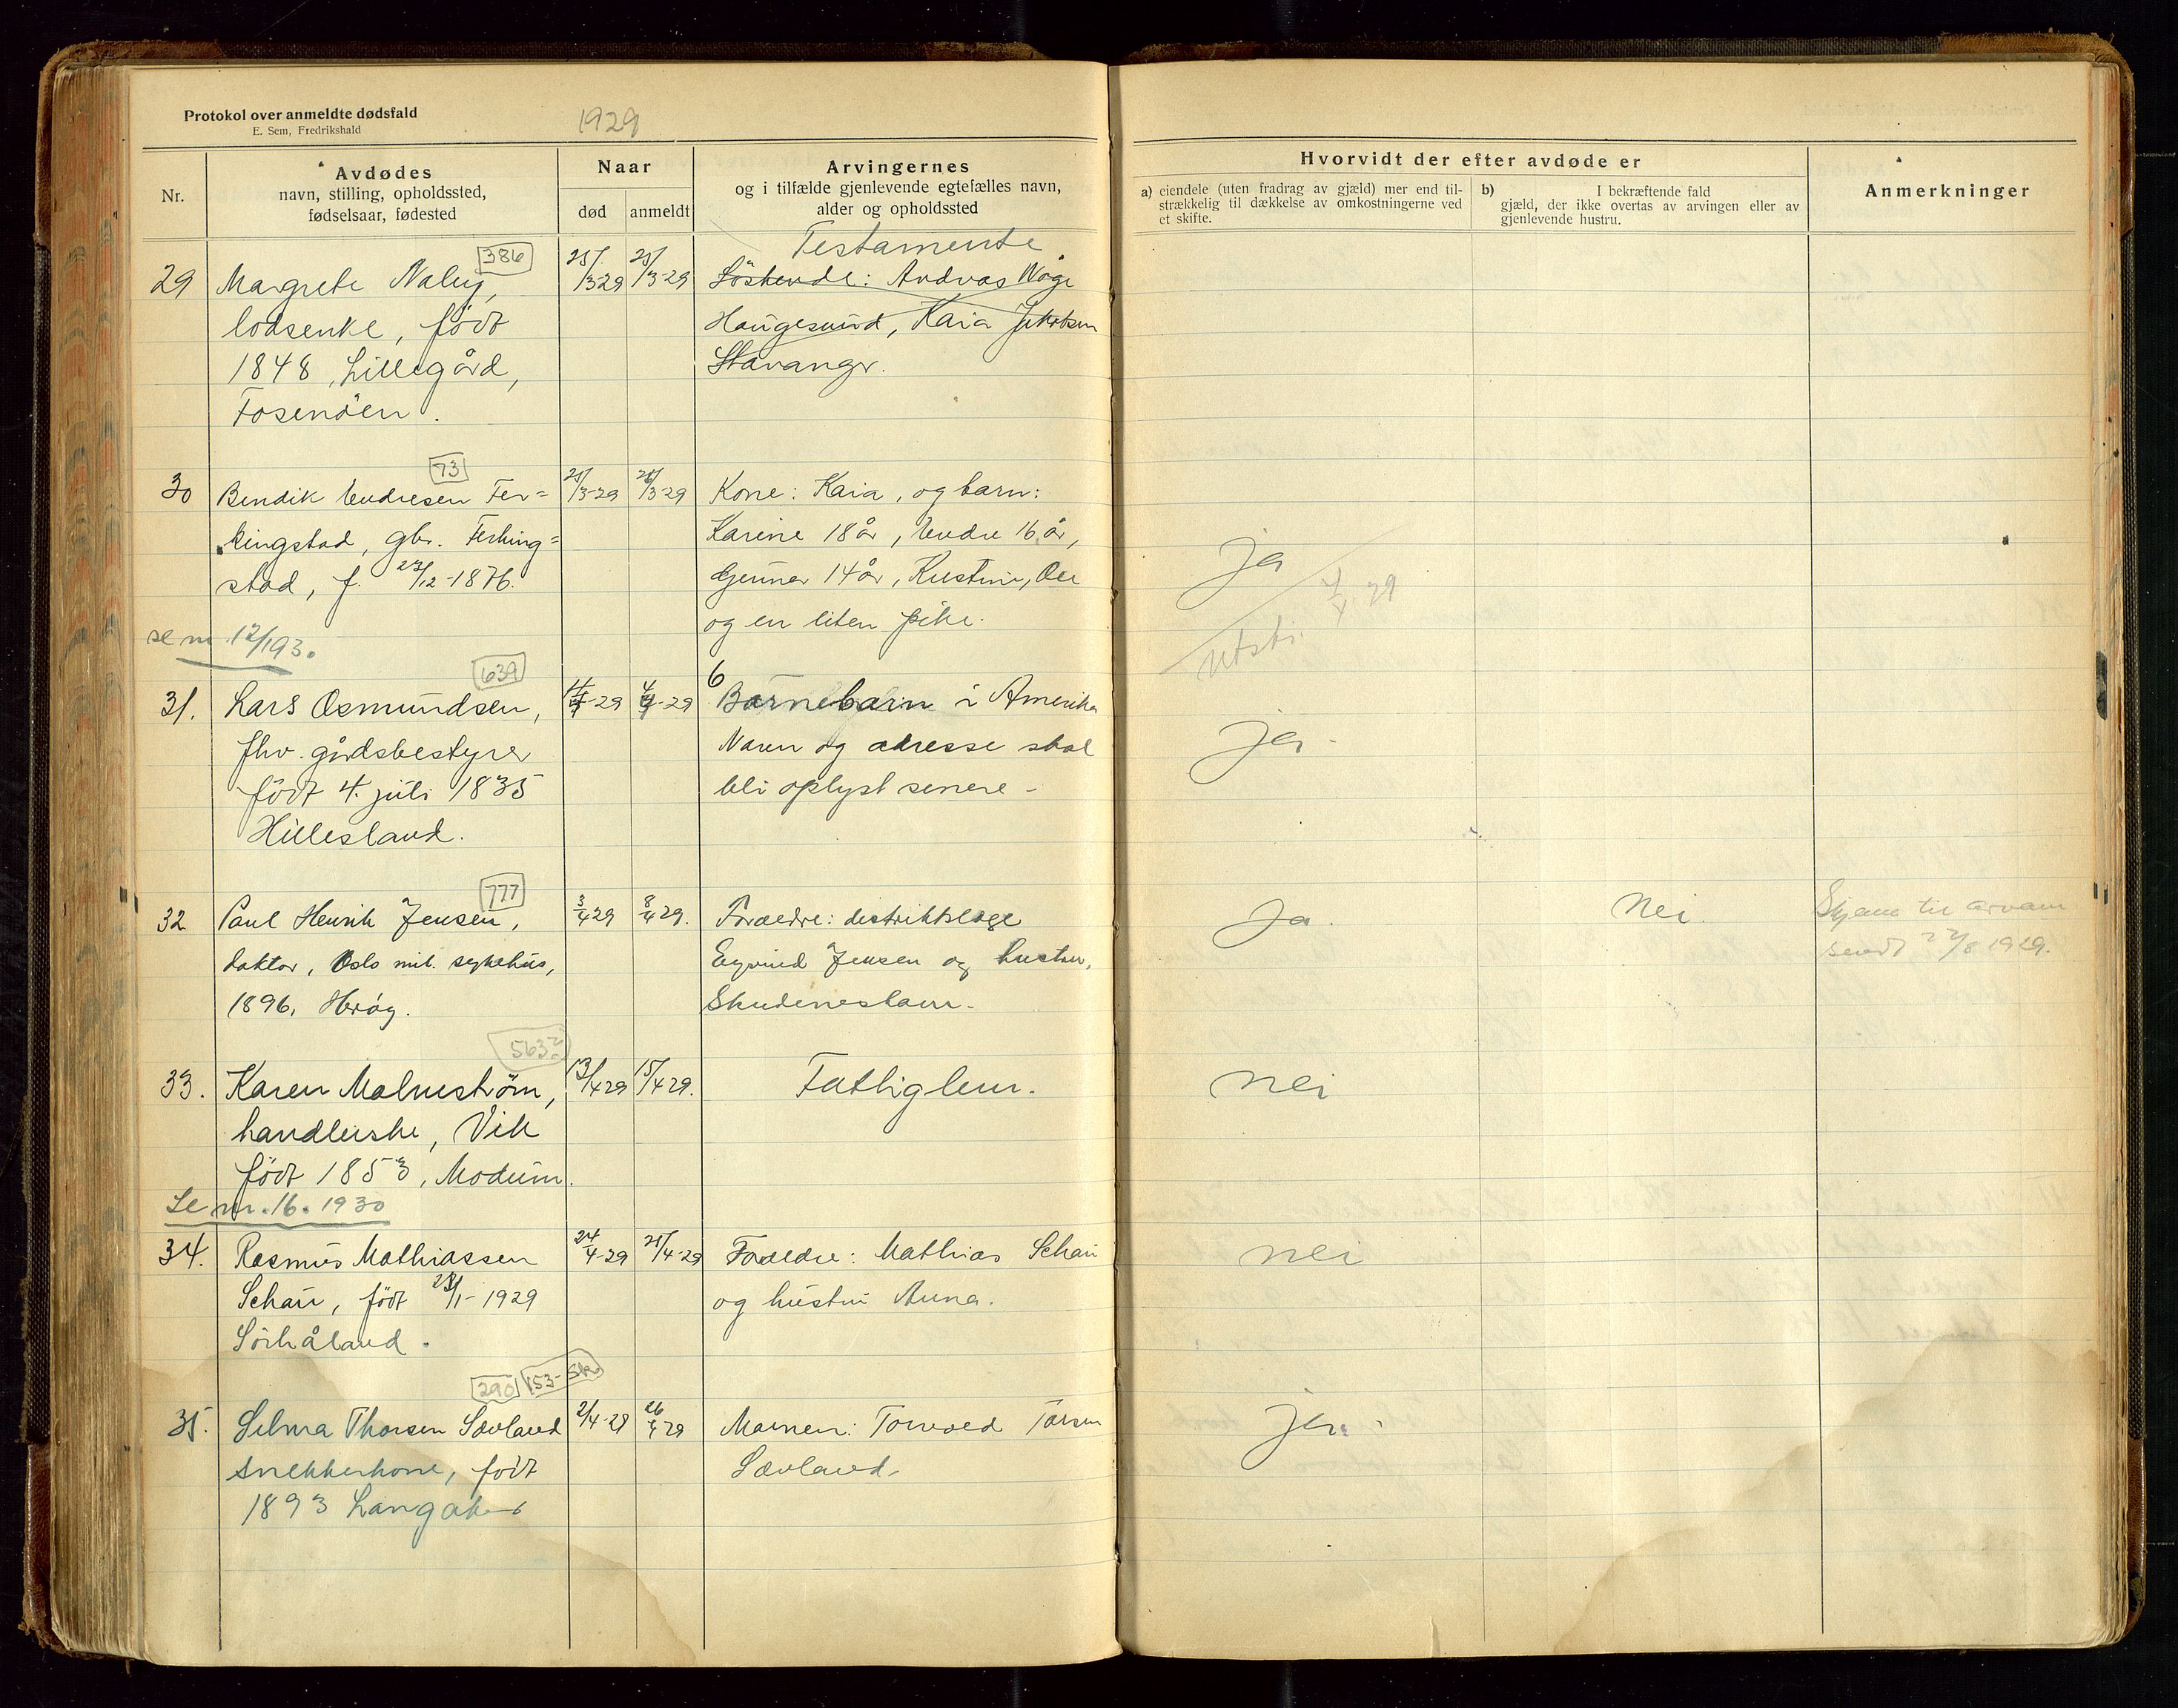 Protokol over anmeldte dødsfald
E. Sem, Fredrikshald
1929
Nr.
Avdødes
navn, stilling, opholdssted,
fødselsaar, fødested
Naar
død
anmeldt
Arvingernes
og i tilfælde gjenlevende egtefælles navn,
alder og opholdssted
Hvorvidt der efter avdøde er
a) eiendele (uten fradrag av gjæld) mer end til-
strækkelig til dækkelse av omkostningerne ved
et skifte.
b) I bekræftende fald
gjæld, der ikke overtas av arvingen eller av
gjenlevende hustru.
Anmerkninger
386
29
Margrete Naley,
lodsenke, født
1848, Lillegård,
Fosenøen.
25/3-29
25/3-29
Testamente
Søskende: Andreas Våge
Haugesund, Kaia Jakobsen
Stavanger.
73
30
Bendik Endresen Fer=
kingstad, gbr. Ferking=
stad, f. 27/12-1876.
25/3-29
26/3-29
Kone: Kaia, og barn:
Karine 18 år, Endre 16 år,
Gunnar 14 år, Kristine, Ole
og en liten pike.
ja
utst. 4/4 29
se nr 12/1930
639
31.
Lars Osmundsen,
fhv. gårdsbestyrer
født 4. juli 1835
Hillesland.
4/4-29
6 Barnebarn i Amerika
Navn og adresse skal
bli oplyst senere -
ja-
777
32
Paul Henrik Jensen,
doktor, Oslo mil. sykehus,
1896,
3/4 29
8/4 29.
Foreldre: distriktslege
Eyvind Jensen og hustru,
Skudeneshavn.
Ja.
Nei.
Skjema til arveavg.
sendt 22/8 1929.
563
33.
Karen Malmstrøm,
handlerske, Vik
født 1853, Modum.
13/4 29
15/4 29.
Fattiglem.
nei
Se nr. 16. 1930
34.
Rasmus Mathiassen
Schau, født 28/1-1929
Sørhåland.
24/4-29
25/4-29
Foreldre: Mathias Schau
og hustru Anna.
nei
290
153- Sk.
35.
Selma Thorsen Sævland
snekkerkone, født
1893 Langåker
2/4-29
26/4 29
Mannen: Torvald Torsen
Sævland.
ja.